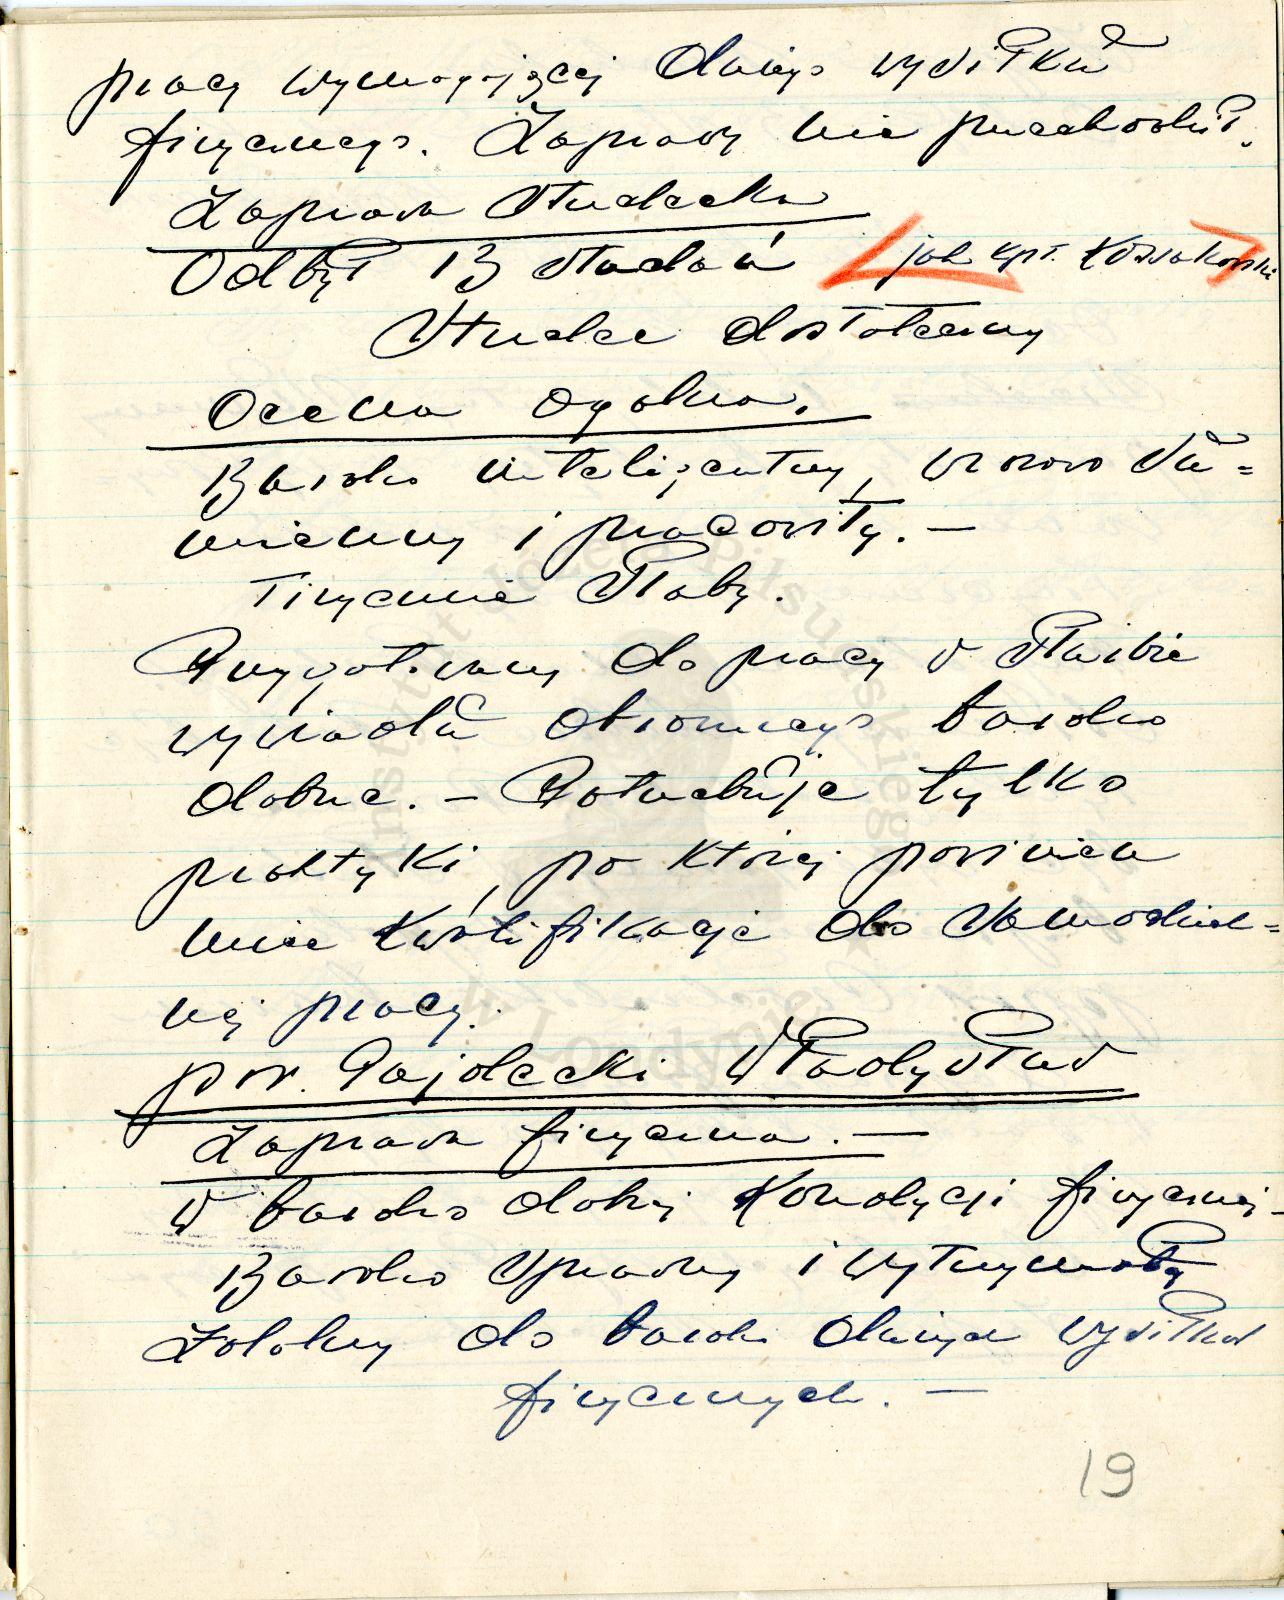 pracy wymagającej dużego wysiłku
fizycznego. Zaprawy nie przechodził.
Zaprawa Strzelecka
Odbył 13 strzelań jak kpt. Kossakowski
Strzelec dostateczny
Ocena ogólna.
Bardzo inteligentny, wzorowo su=
mienny i pracowity. —
Fizycznie słaby.
Przygotowany do pracy w służbie
wywiadu obronnego bardzo
dobrze. — Potrzebuje tylko
praktyki, po której powinien
mieć kwalifikacje do samodziel=
nej pracy.
por. Gajdecki Władysław
Zaprawa fizyczna. —
W bardzo dobrej kondycji fizycznej —
Bardzo sprawny i wytrzymały
zdolny do bardzo dużych wysiłków
fizycznych. —
19
Instytut Józefa Piłsudskiego
w Londynie